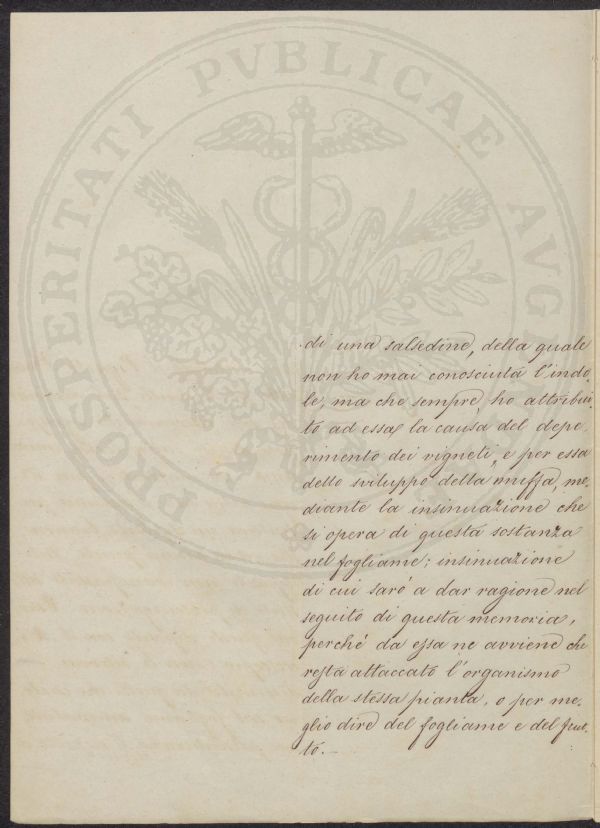 PROSPERITATI PVBLICAE AVGENDAE
di una salsedine, della quale
non ho mai conosciuta l'indo-
le, ma che sempre, ho attribui-
to ad essa la causa del depe-
rimento dei vigneti, e per essa
dello sviluppo della muffa, me-
diante la insinuazione che
si opera di questa sostanza
nel fogliame; insinuazione
di cui saró a dar ragione nel
seguito di questa memoria,
perché da essa ne avviene che
resta attaccato l'organismo
della stessa pianta, o per me-
glio dire del fogliame e del frut-
to. _